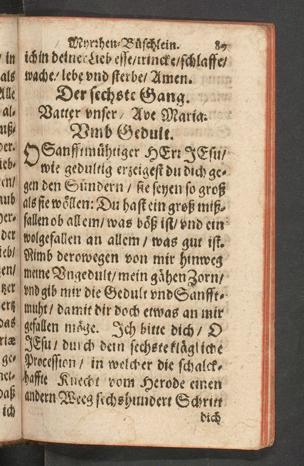 Myrrhen-Büschlein. 89
ich in deiner Lieb esse/trincke/schlaffe/
wache/lebe vnd sterbe/ Amen.
Der sechste Gang.
Vatter vnser/ Ave Maria.
Vmb Gedult.
O Sanfftmühtiger HErr JEsu/
wie gedultig erzeigest du dich ge-
gen den Sündern/ sie seyen so groß
als sie wöllen: Du hast ein groß miß-
fallen ob allem/ was böß ist/ vnd ein
wolgefallen an allem/ was gut ist.
Nimb derowegen von mir hinweg
meine Vngedult/ mein gähen Zorn/
vnd gib mir die Gedult vnd Sanfft-
muht/ damit dir doch etwas an mir
gefallen möge. Ich bitte dich/ O
JEsu/ durch dein sechste klägliche
Procession/ in welcher die schalck-
haffte Knecht vom Herode einen
andern Weeg sechshundert Schritt
dich